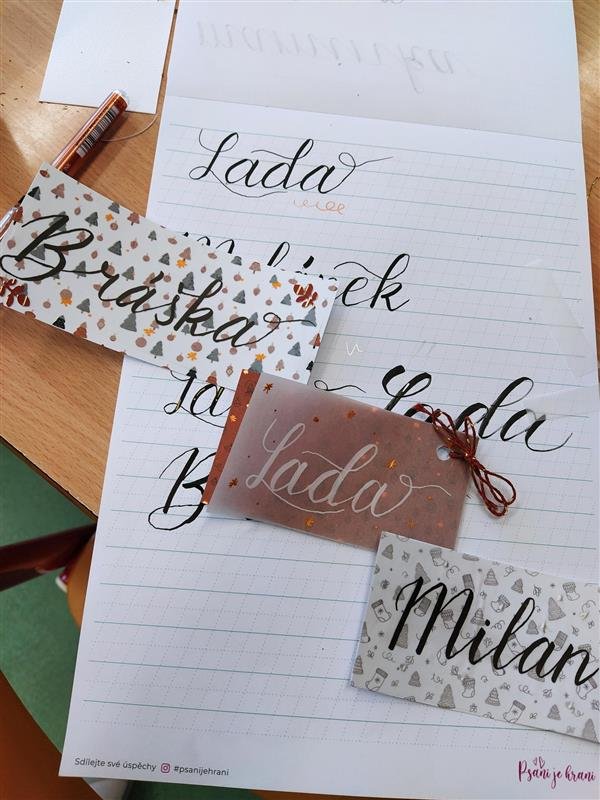 maminka
Lada
Bráška
Lada
Lada
Milan
Sdílejte své úspěchy #psanijehrani
Psaní je hraní